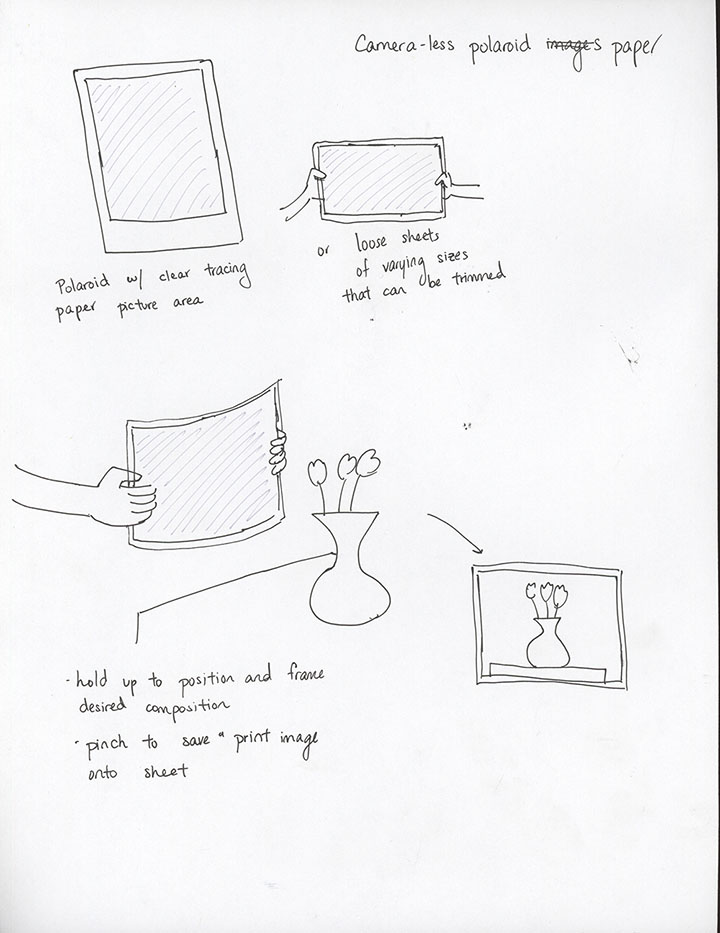 Camera-less polaroid images paper
Polaroid w/ clear tracing
paper picture area
or loose sheets
of varying sizes
that can be trimmed
· hold up to position and frame
desired composition
· pinch to save " print image
onto sheet